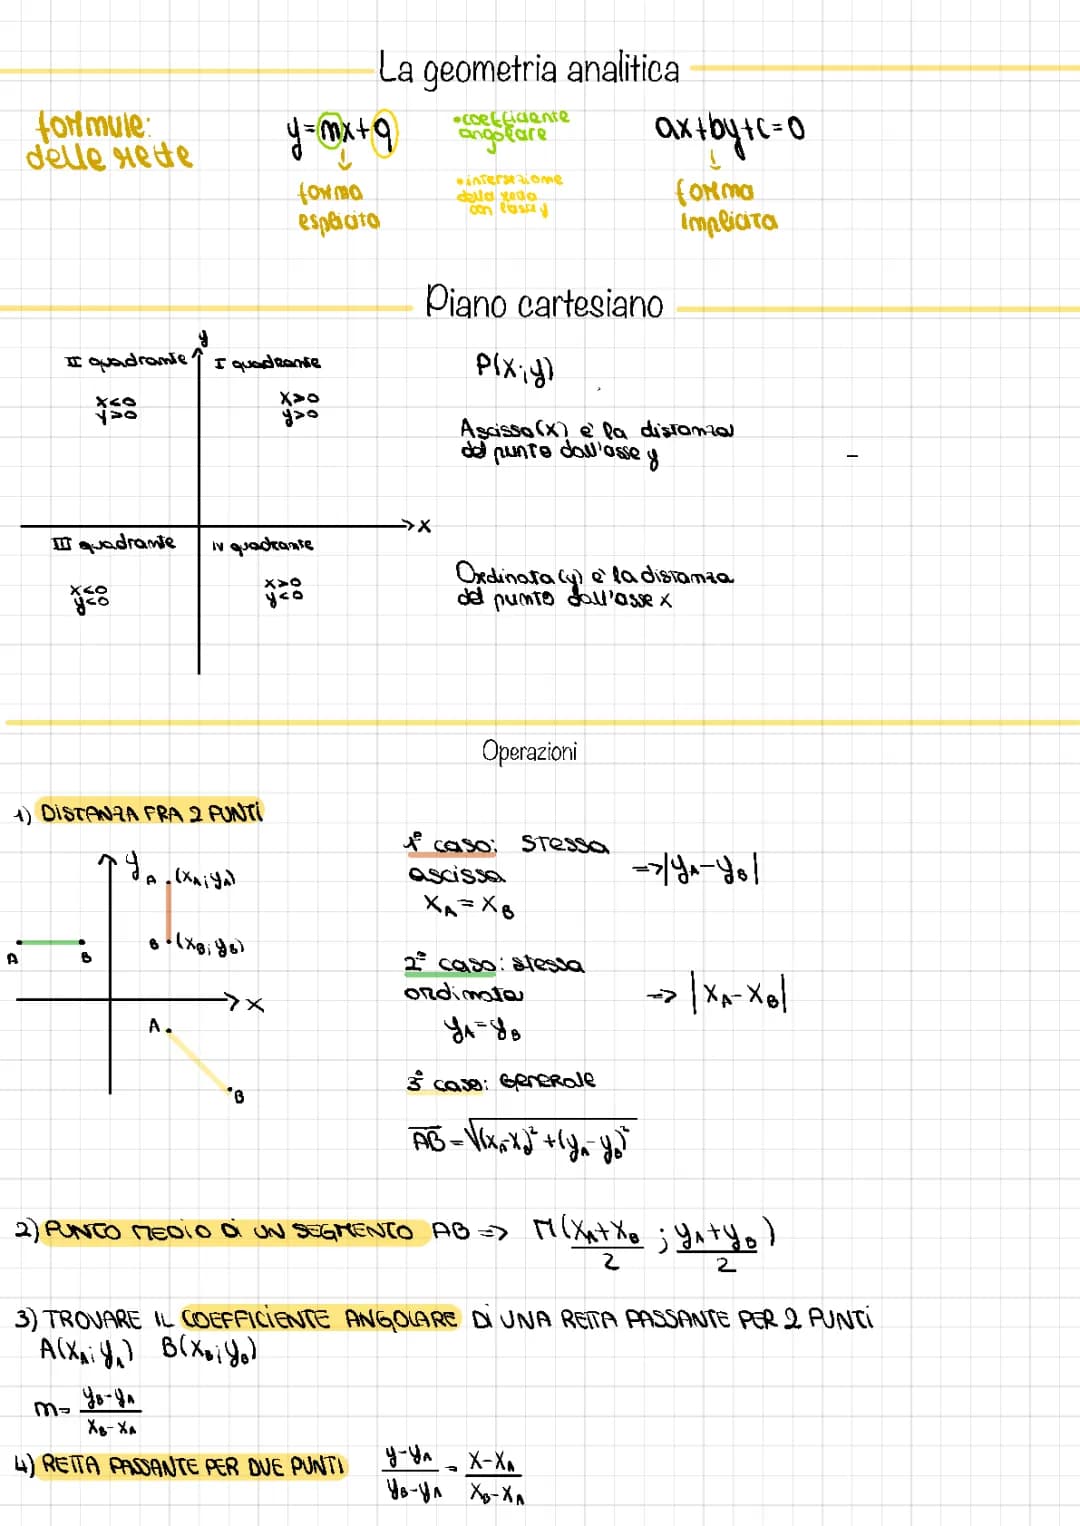 La geometria analitica
formule:
delle rette
y=mx+q
forma
esplicita
•coefficiente
angolare
•intersezione
della retta
con l'asse y
ax+by+c=0
forma
implicita
Piano cartesiano
y
II quadrante
I quadrante
x<0
y>0
x>0
y>0
x
III quadrante
IV quadrante
x<0
y<0
x>0
y<0
P(x;y)
Ascissa(x) e' la distanza
del punto dall'asse y
Ordinata (y) e' la distanza
del punto dall'asse x
Operazioni
1) DISTANZA FRA 2 PUNTI
y
A (xA;yA)
B (xB;yB)
A B
x
A
B
1° caso: stessa
ascissa
xA = xB
=>|yA-yB|
2° caso: stessa
ordinata
yA=yB
=> |xA-xB|
3° caso: Generale
AB = √(xA-xB)²+(yA-yB)²
2) PUNTO MEDIO DI UN SEGMENTO AB => M(xA+xB/2 ; yA+yB/2)
3) TROVARE IL COEFFICIENTE ANGOLARE DI UNA RETTA PASSANTE PER 2 PUNTI
A(xA;yA) B(xB;yB)
m= yB-yA/xB-xA
4) RETTA PASSANTE PER DUE PUNTI y-yA/yB-yA = x-xA/xB-xA